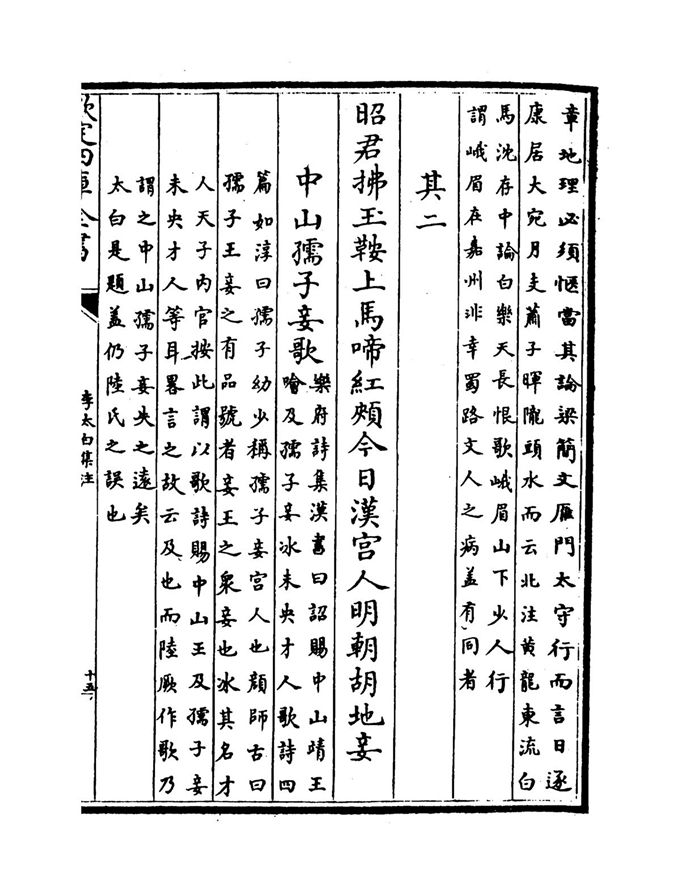 章地理必須愜當其論梁簡文鴈門太守行而言日逐
康居大宛月支蕭子暉隴頭水而云北注黄龍東流白
馬沈存中論白樂天長恨歌峨眉山下少人行
謂峨眉在嘉州非幸蜀路文人之病盖有同者
其二
昭君拂玉鞍上馬啼紅頰今日漢宫人明朝胡地妾
中山孺子妾歌
樂府詩集漢書曰詔賜中山靖王
噲及孺子妾冰未央才人歌詩四
篇如淳曰孺子幼少稱孺子妾宫人也顔師古曰
孺子王妾之有品號者妾王之衆妾也冰其名才
人天子内官按此謂以歌詩賜中山王及孺子妾
未央才人等耳畧言之故云及也而陸厥作歌乃
謂之中山孺子妾失之遠矣
太白是題盖仍陸氏之誤也
欽定四庫全書
李太白集注
十五